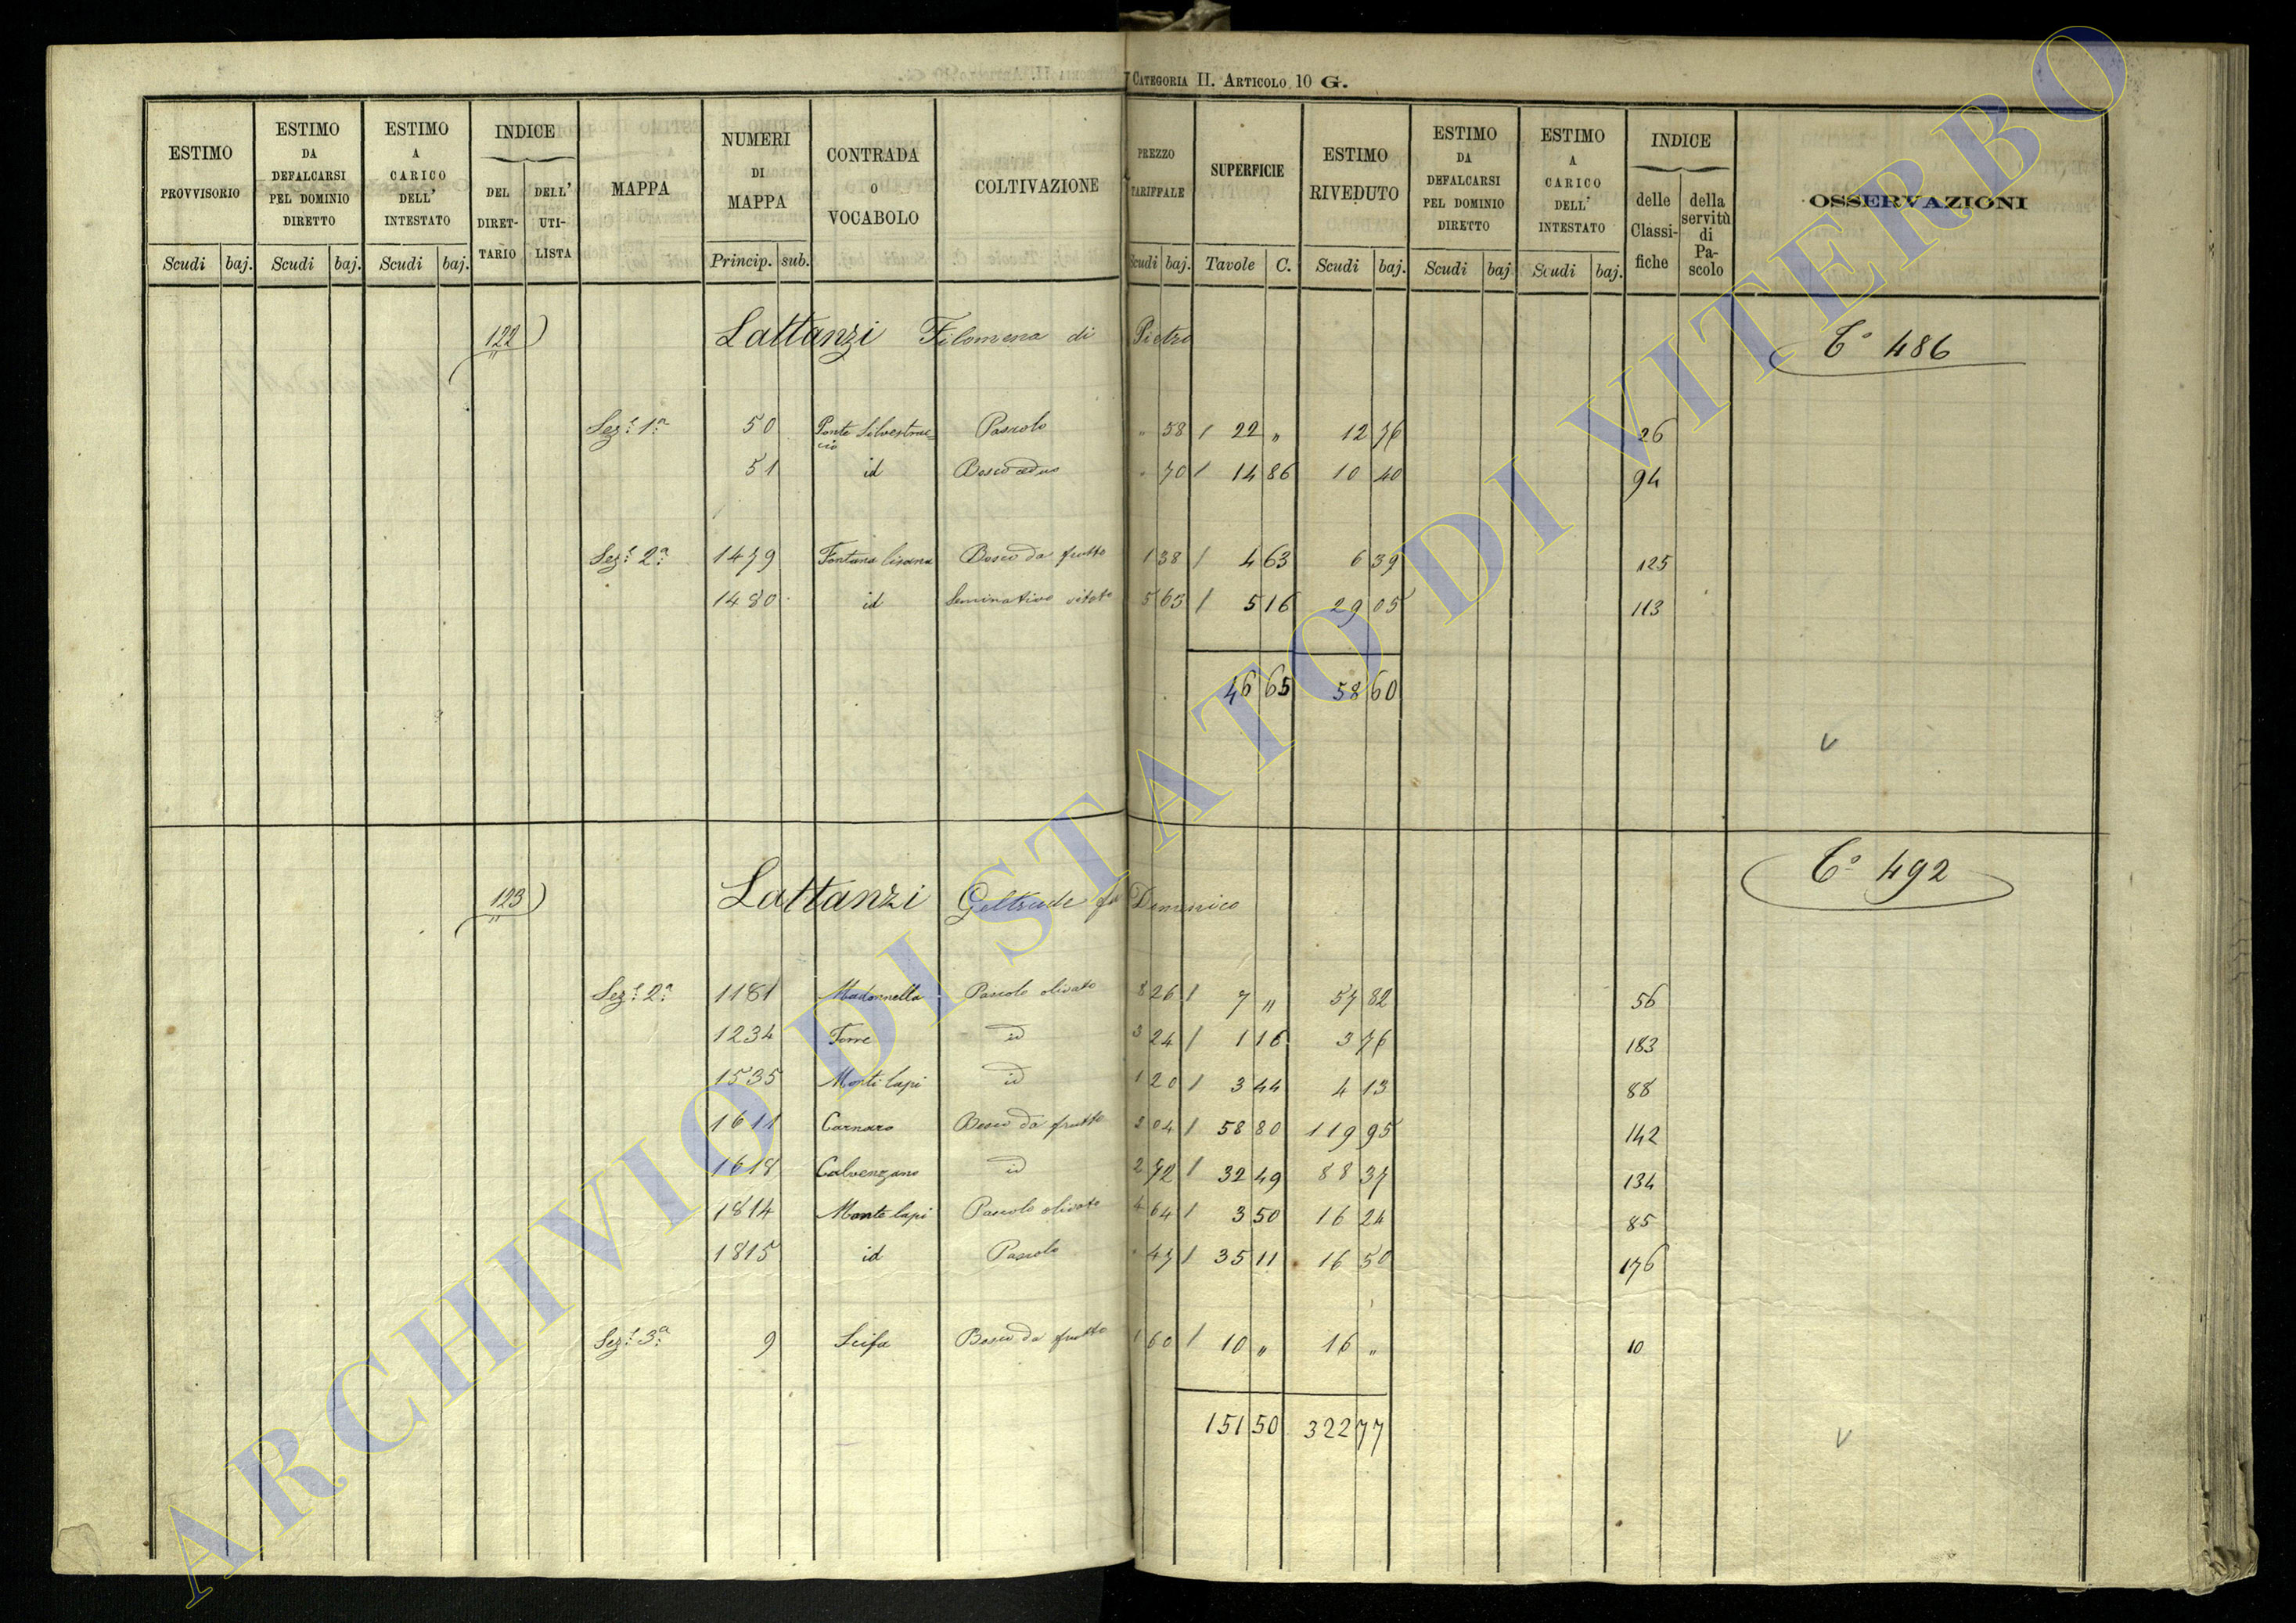 CATEGORIA II. ARTICOLO 10 G.
ESTIMO PROVVISORIO Scudi baj. | ESTIMO DA DEFALCARSI PEL DOMINIO DIRETTO Scudi baj. | ESTIMO A CARICO DELL' INTESTATO Scudi baj. | INDICE DEL DIRET-TARIO DELL' UTI-LISTA | MAPPA | NUMERI DI MAPPA Princip. sub. | CONTRADA O VOCABOLO | COLTIVAZIONE | PREZZO TARIFFALE Scudi baj. | SUPERFICIE Tavole C. | ESTIMO RIVEDUTO Scudi baj. | ESTIMO DA DEFALCARSI PEL DOMINIO DIRETTO Scudi baj. | ESTIMO A CARICO DELL' INTESTATO Scudi baj. | INDICE delle Classi-fiche della servitù di Pa-scolo | OSSERVAZIONI
122) Lattanzi Filomena di Pietro T.° 486
Sez.e 1a 50 Ponte Silvestruc=cio Pascolo " 58 / 22 " 12 76 26
51 id Bosco ceduo " 70 / 14 86 10 40 94
Sez.e 2a 1479 Fontana Bosco da frutto 1 38 / 4 63 6 39 125
1480 id Seminativo vitato 5 63 / 5 16 29 05 113
46 65 58 60
V
123) Lattanzi Geltrude fu Domenico T.° 492
Sez.e 2a 1181 Madonnella Pascolo olivato 8 26 / 7 " 57 82 56
1234 Torre id 3 24 / 1 16 3 76 183
1535 Monti lapi id 1 20 / 3 44 4 13 88
1611 Carnaro Bosco da frutto 2 04 / 58 80 119 95 142
1618 Calvenzano id 2 72 / 32 49 88 37 134
1814 Monte lapi Pascolo olivato 4 64 / 3 50 16 24 85
1815 id Pascolo " 47 / 35 11 16 50 176
Sez.e 3a 9 Scifa Bosco da frutto 1 60 / 10 " 16 " 10
151 50 322 77
V
ARCHIVIO DI STATO DI VITERBO